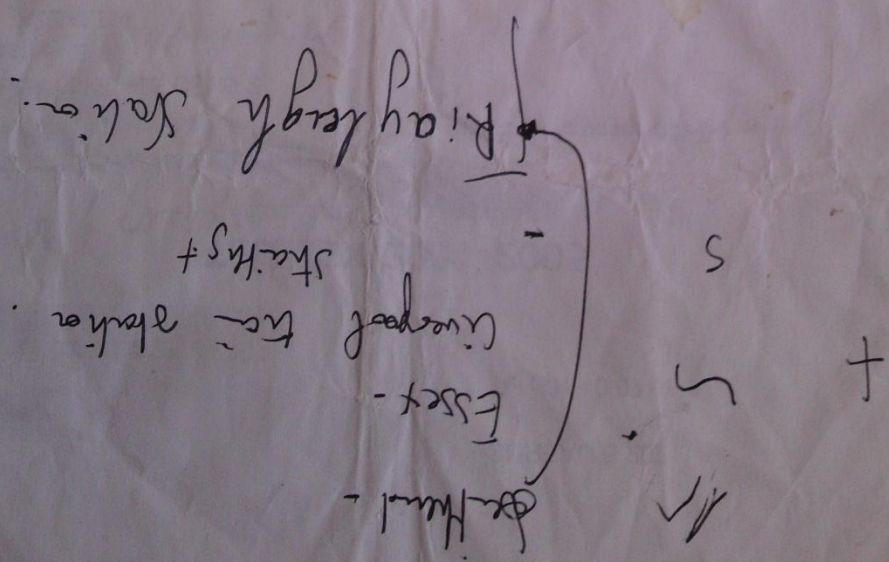 Southend -
Essex -
Liverpool train station
-
Riayleigh Station